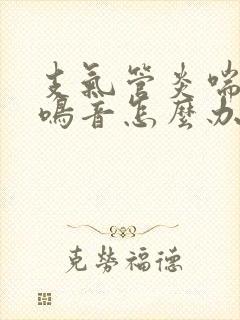 支氣管炎喘
鳴音怎麼办
克勞福德